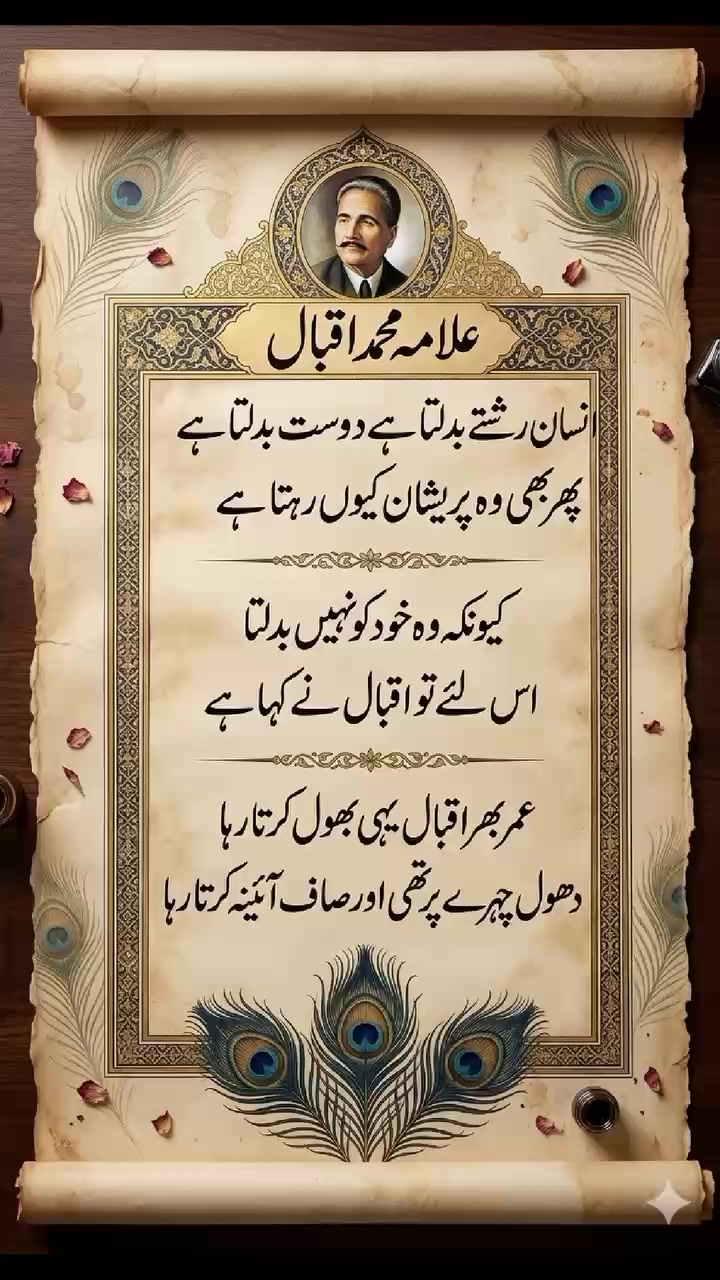 علامہ محمد اقبال
انسان رشتے بدلتا ہے دوست بدلتا ہے
پھر بھی وہ پریشان کیوں رہتا ہے
کیونکہ وہ خود کو نہیں بدلتا
اس لئے تو اقبال نے کہا ہے
عمر بھر اقبال یہی بھول کرتا رہا
دھول چہرے پر تھی اور صاف آئینہ کرتا رہا